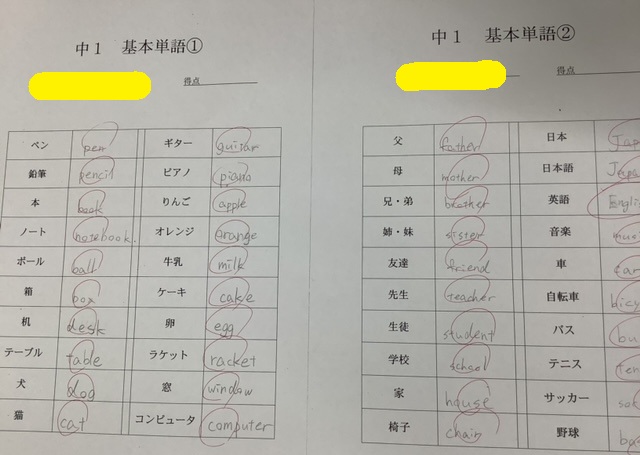 中1 基本単語①
得点
ペン pen ギター guitar
鉛筆 pencil ピアノ piano
本 book りんご apple
ノート notebook. オレンジ orange
ボール ball 牛乳 milk
箱 box ケーキ cake
机 desk 卵 egg
テーブル table ラケット racket
犬 dog 窓 window
猫 cat コンピュータ computer
中1 基本単語②
得点
父 father 日本 Jap
母 mother 日本語 Japa
兄・弟 brother 英語 Englis
姉・妹 sister 音楽 musi
友達 friend 車 car
先生 teacher 自転車 bicy
生徒 student バス bu
学校 school テニス ten
家 house サッカー
椅子 chair 野球